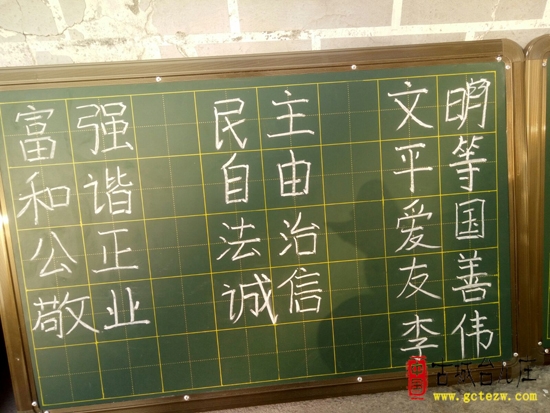 富强 民主 文明
和谐 自由 平等
公正 法治 爱国
敬业 诚信 友善
李伟
古城台儿庄
www.gctezw.com